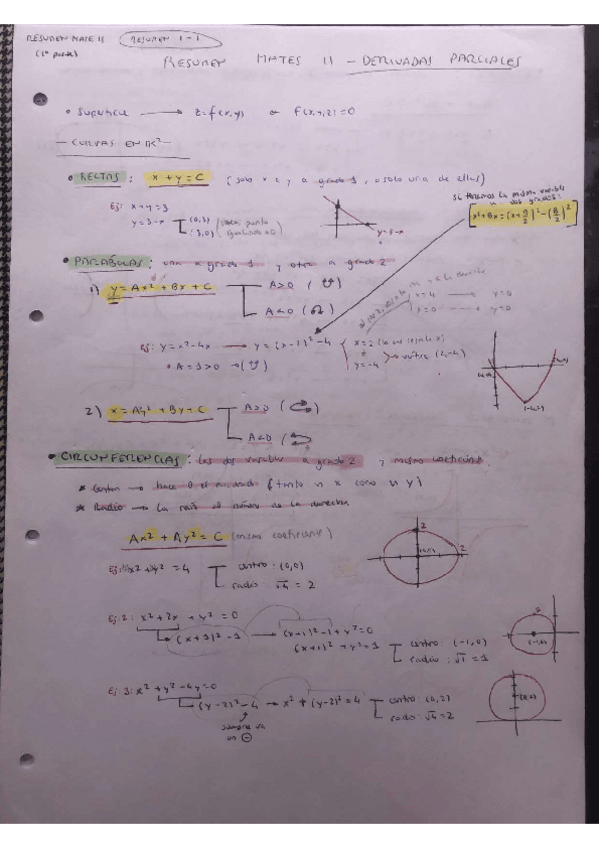 RESUMEN MATE II
RESUMEN 1-1
(1ª parte)
RESUMEN MATES II - DERIVADAS PARCIALES
• SUPERFICIE → z=f(x,y) o F(x,y,z)=0
- CURVAS EN R² -
• RECTAS : x + y = C (solo x e y a grado 1, o solo una de ellas)
si tenemos la misma variable
dos grados:
x²+Bx = (x+B/2)² - (B/2)²
Ej: x+y=3
y=3-x
(0,3)
(3,0)
y=3-x
• PARÁBOLAS : una a grado 1 y otra a grado 2
1) y = Ax² + Bx + C
A>0 (
A<0 (
x=4 → y=0
x=0 → y=0
Ej: y = x²-4x → y = (x-2)²-4
x=2
y=-4
vértice (2,-4)
• A=1>0 → (
2) x = Ay² + By + C
A>0 (
A<0 (
• CIRCUNFERENCIAS : Las dos variables a grado 2 y mismo coeficiente.
* Centro → hace 0 el cuadrado (tanto en x como en y)
* Radio → La raíz del número de la derecha
Ax² + Ay² = C (mismo coeficiente)
2
2
centro : (0,0)
radio : √4 = 2
Ej 2: x² + 2x + y² = 0
(x+1)² - 1 → (x+1)²-1+y²=0
(x+1)² + y² = 1
centro : (-1,0)
radio : √1 = 1
Ej 3: x² + y² - 4y = 0
(y-2)² - 4 → x² + (y-2)² = 4
centro : (0,2)
radio : √4 = 2
siempre va
en ⊖